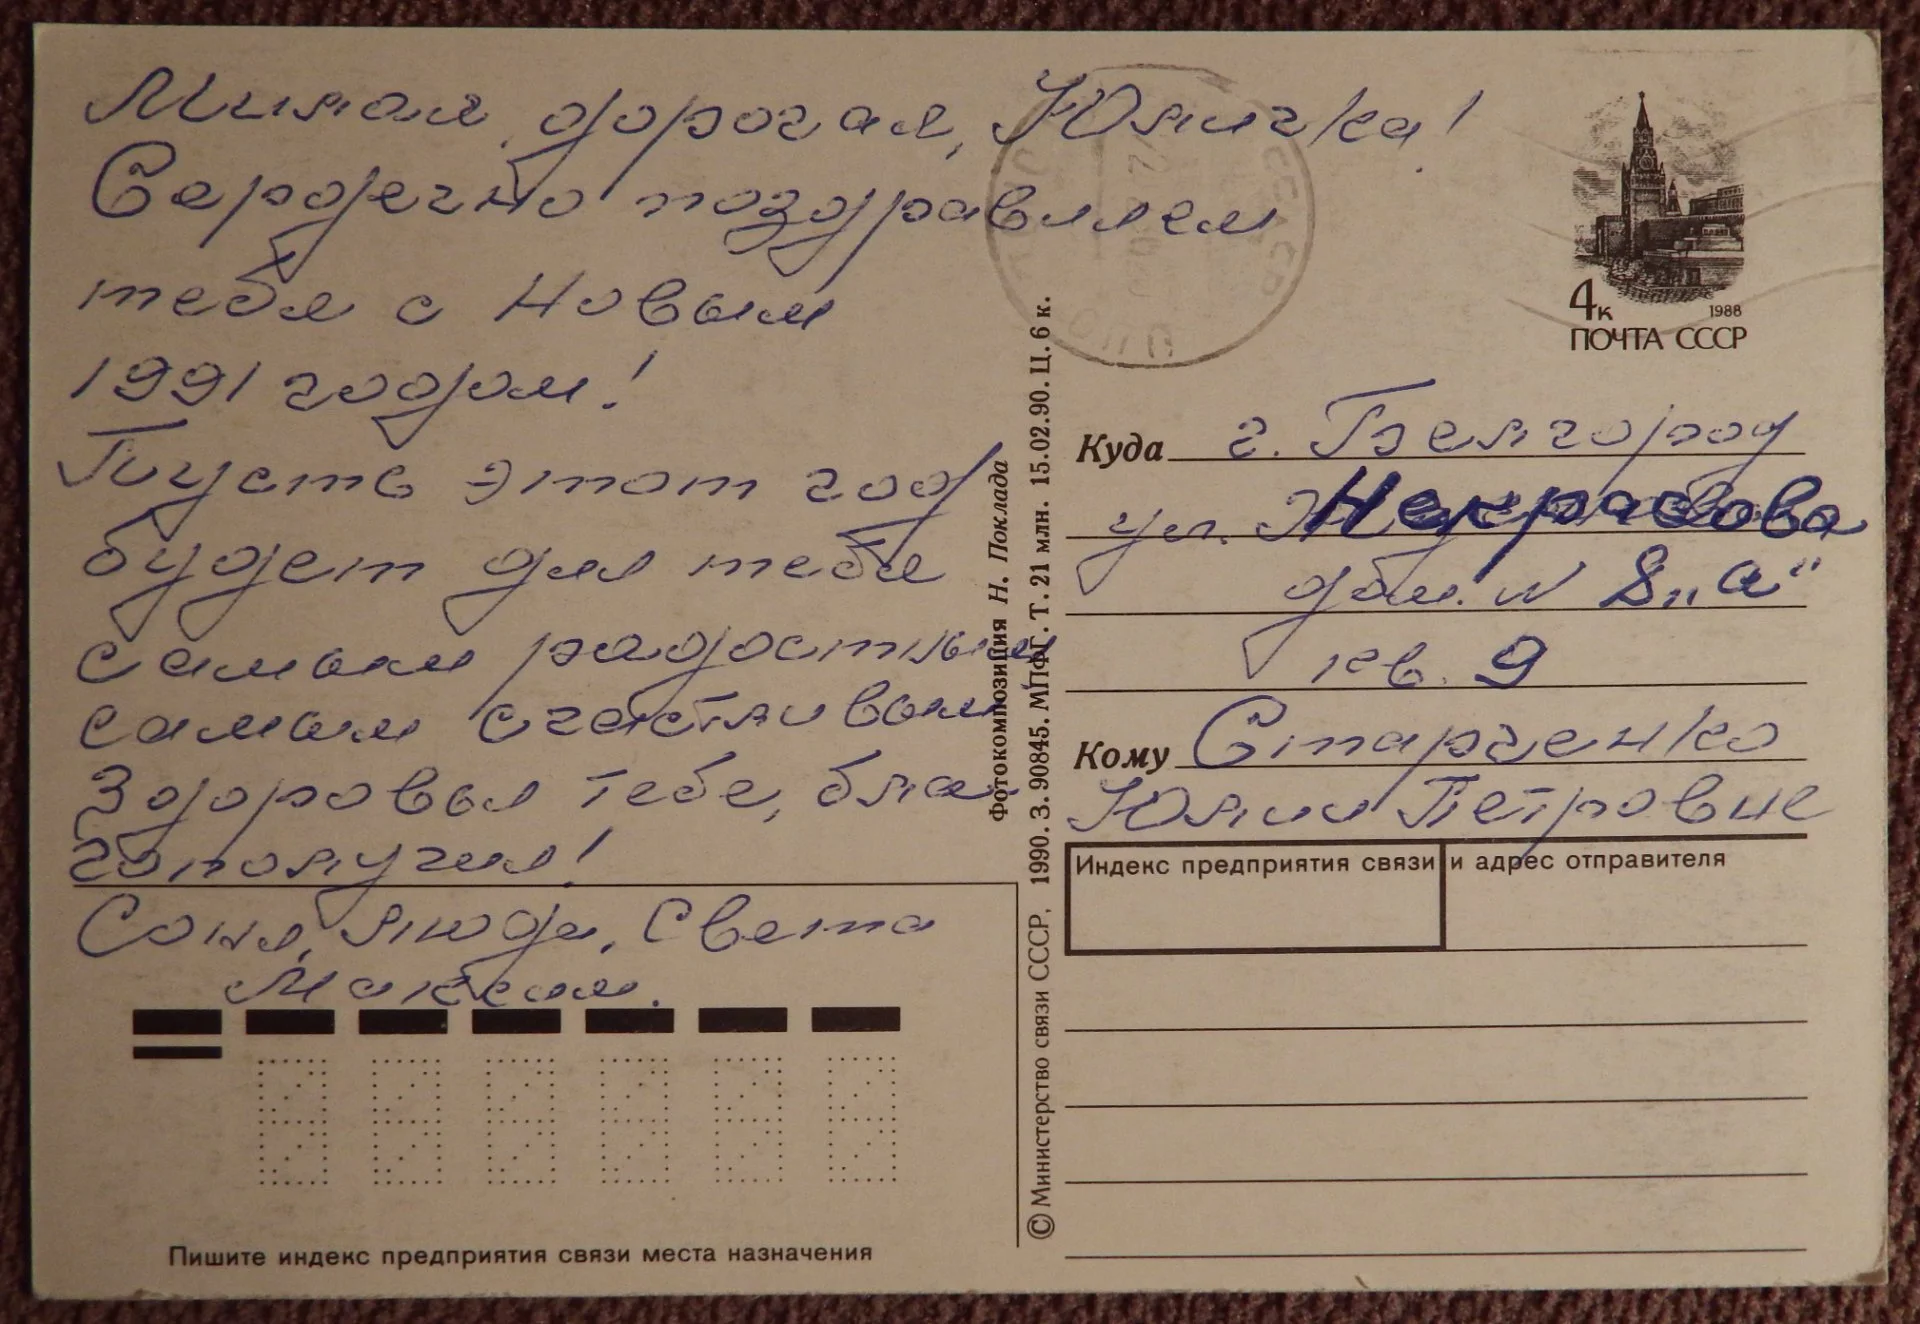 Милая, дорогая, Юличка!
Сердечно поздравляем
тебя с Новым
1991 годом!
Пусть этот год
будет для тебя
самым радостным
самым счастливым
Здоровья тебе, бла
гополучия!
Соня, Люда, Света
Максим.
Пишите индекс предприятия связи места назначения
Фотокомпозиция Н. Поклада
© Министерство связи СССР. 1990. З. 90845. МПФГ. Т. 21 млн. 15.02.90. Ц. 6 к.
4к
1988
ПОЧТА СССР
Куда г. Белгород
ул. Некрасова
дом. N 8 „а"
кв. 9
Кому Старченко
Юлии Петровне
Индекс предприятия связи и адрес отправителя